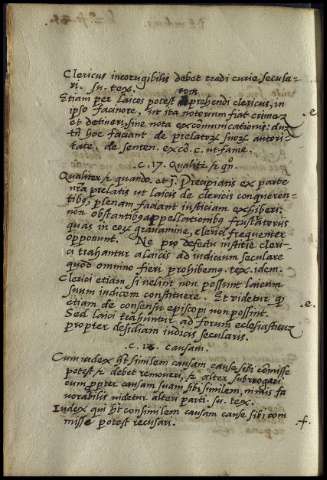 Clericus incorrigibilis debet tradi curie secula-
ri. su. tex.
Etiam per laicos potest comprehendi clericus, in
ipso facinore, ut ita notorium fiat crimen
et detineri, sine nota excommunicationis: dum
tn hoc faciant de prelator suor autori-
tate. de senten. exco. c. ut fame. .e.
c. 17. Qualiter et qn.
Qualiter et quando. et j. Precipimus ex parte
nra prelatis ut laicis de clericis conqueren-
tibus, plenam faciant iusticiam exhiberi:
non obstantibus appellationibus frustatorijs
quas in eorum gravamine, clerici frequenter
opponunt. Ne pro defectu iusticie cleri-
ci trahantur a laicis ad iudicium seculare
quod omnino fieri prohibemus. tex. idem.
Clerici etiam si velint non possunt laicum
suum iudicem constituere. Et videtur q .e.
etiam de consensu episcopi non possint.
Sed laici trahuntur ad forum ecclesiasticum
propter desidiam iudicis secularis.
c. 18. Causam.
Cum iudex ht similem causam cause sibi comisse
potest et debet removeri, et alter subrogari
cum propter causam suam sibi similem, nimis fa-
vorabilis videtur alteri parti. su. tex.
Iudex qui ht consimilem causam cause sibi com
misse potest recusari. .f.